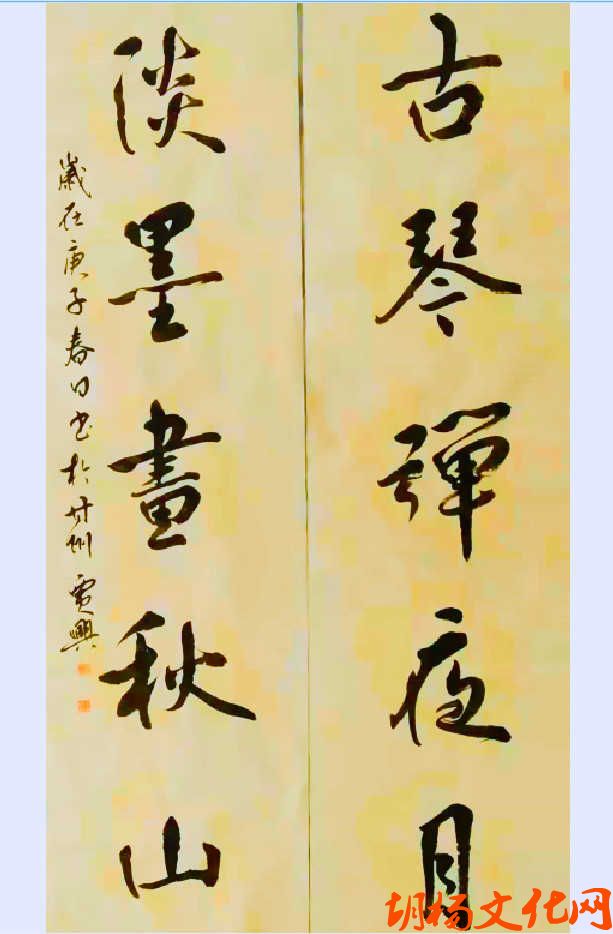 古琴彈夜月
淡墨畫秋山
歲在庚子春日书於甘州 賈興
胡杨文化网